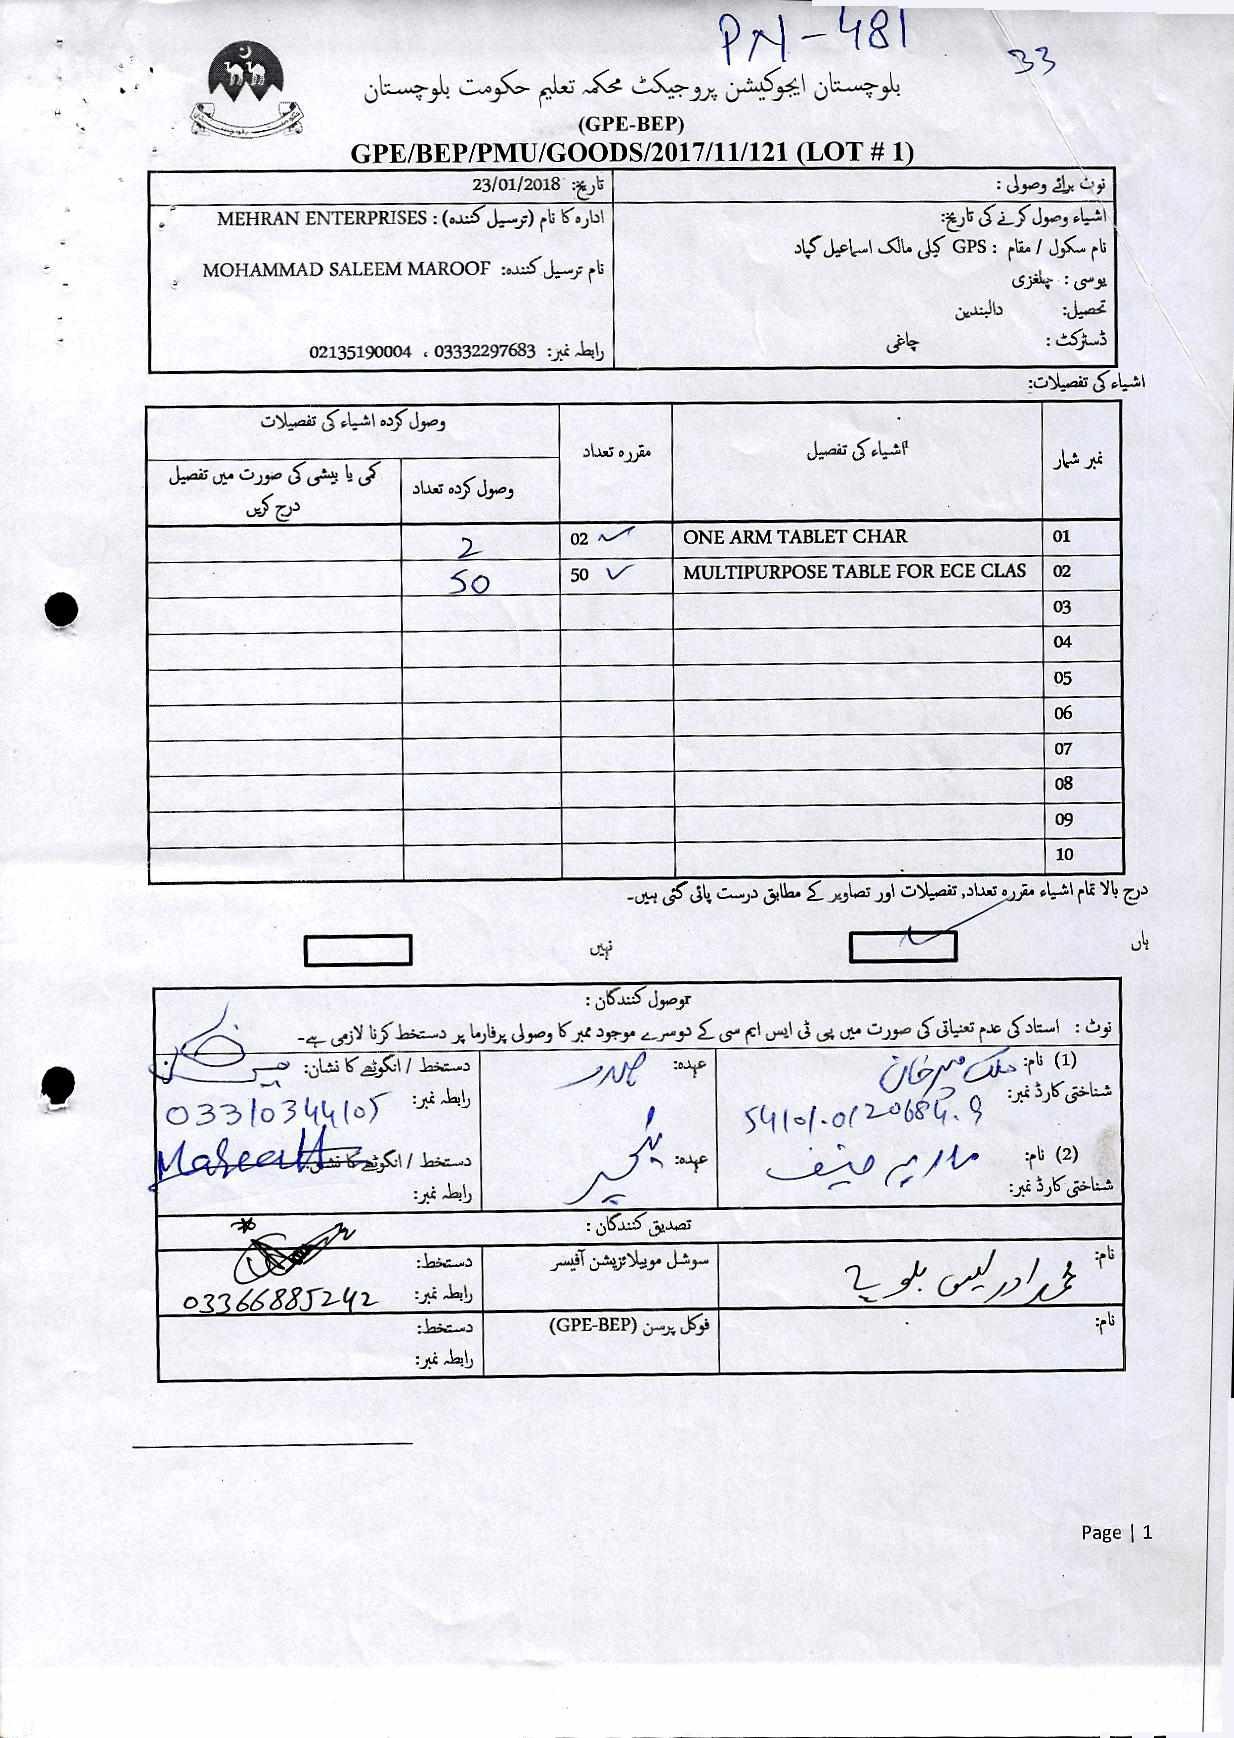 PN-481
33
بلوچستان ایجوکیشن پروجیکٹ محکمہ تعلیم حکومت بلوچستان
(GPE-BEP)
GPE/BEP/PMU/GOODS/2017/11/121 (LOT # 1)
نوٹ برائے وصولی :
اشیاء وصول کرنے کی تاریخ:
نام سکول / مقام : GPS کیلی مالک اسماعیل گپاد
یوسی : چلغزی
تحصیل: دالبندین
ڈسٹرکٹ : چاغی
تاریخ: 23/01/2018
ادارہ کا نام (ترسیل کنندہ) : MEHRAN ENTERPRISES
نام ترسیل کنندہ: MOHAMMAD SALEEM MAROOF
رابطہ نمبر: 03332297683 ، 02135190004
اشیاء کی تفصیلات:
نمبر شمار اشیاء کی تفصیل مقررہ تعداد وصول کردہ اشیاء کی تفصیلات
وصول کردہ تعداد کمی یا بیشی کی صورت میں تفصیل
درج کریں
01 ONE ARM TABLET CHAR 02 2
02 MULTIPURPOSE TABLE FOR ECE CLAS 50 50
03
04
05
06
07
08
09
10
درج بالا تمام اشیاء مقررہ تعداد, تفصیلات اور تصاویر کے مطابق درست پائی گئی ہیں۔
ہاں نہیں
وصول کنندگان :
نوٹ : استاد کی عدم تعیناتی کی صورت میں پی ٹی ایس ایم سی کے دوسرے موجود ممبر کا وصولی پرفارما پر دستخط کرنا لازمی ہے۔
(1) نام: ملک میر خان عہدہ: صدر دستخط / انگوٹھے کا نشان:
شناختی کارڈ نمبر: رابطہ نمبر: 03310344105
(2) نام: ماریہ حنیف عہدہ: ٹیچر دستخط / انگوٹھے کا نشان:
شناختی کارڈ نمبر: رابطہ نمبر:
تصدیق کنندگان :
نام: محمد ادریس بلوچ سوشل موبیلائزیشن آفیسر دستخط:
رابطہ نمبر: 03366885242
نام: فوکل پرسن (GPE-BEP) دستخط:
رابطہ نمبر:
Page | 1